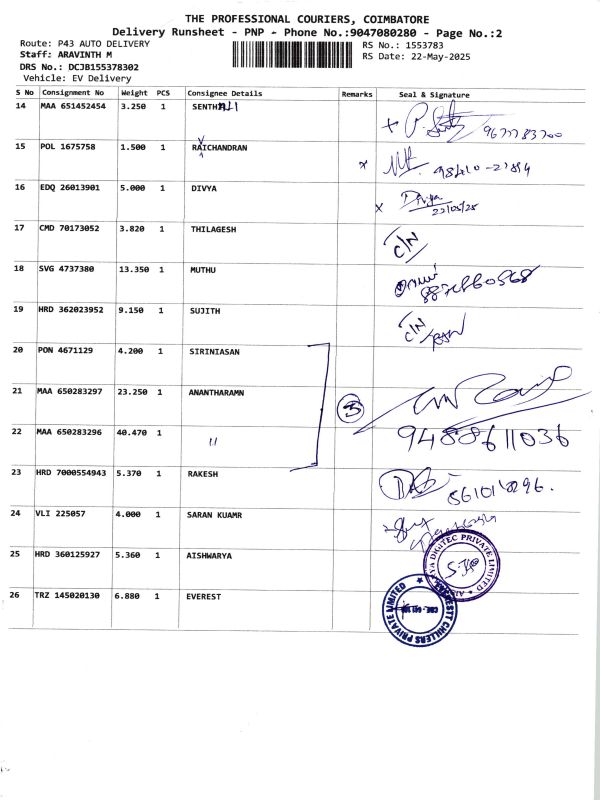 THE PROFESSIONAL COURIERS, COIMBATORE
Delivery Runsheet - PNP - Phone No.:9047080280 - Page No.:2
Route: P43 AUTO DELIVERY RS No.: 1553783
Staff: ARAVINTH M RS Date: 22-May-2025
DRS No.: DCJB155378302
Vehicle: EV Delivery
S No Consignment No Weight PCS Consignee Details Remarks Seal & Signature
14 MAA 651452454 3.250 1
15 POL 1675758 1.500 1 RAICHANDRAN
16 EDQ 26013901 5.000 1 DIVYA Divya
22/05/25
17 CMD 70173052 3.820 1 THILAGESH C/N
18 SVG 4737380 13.350 1 MUTHU
19 HRD 362023952 9.150 1 SUJITH C/N
20 PON 4671129 4.200 1 SIRINIASAN
21 MAA 650283297 23.250 1 ANANTHARAMN 3
22 MAA 650283296 40.470 1 " 9488611036
23 HRD 7000554943 5.370 1 RAKESH
24 VLI 225057 4.000 1 SARAN KUAMR
25 HRD 360125927 5.360 1 AISHWARYA
DIGITEC PRIVATE LIMITED
26 TRZ 145020130 6.880 1 EVEREST
CHILLERS PRIVATE LIMITED